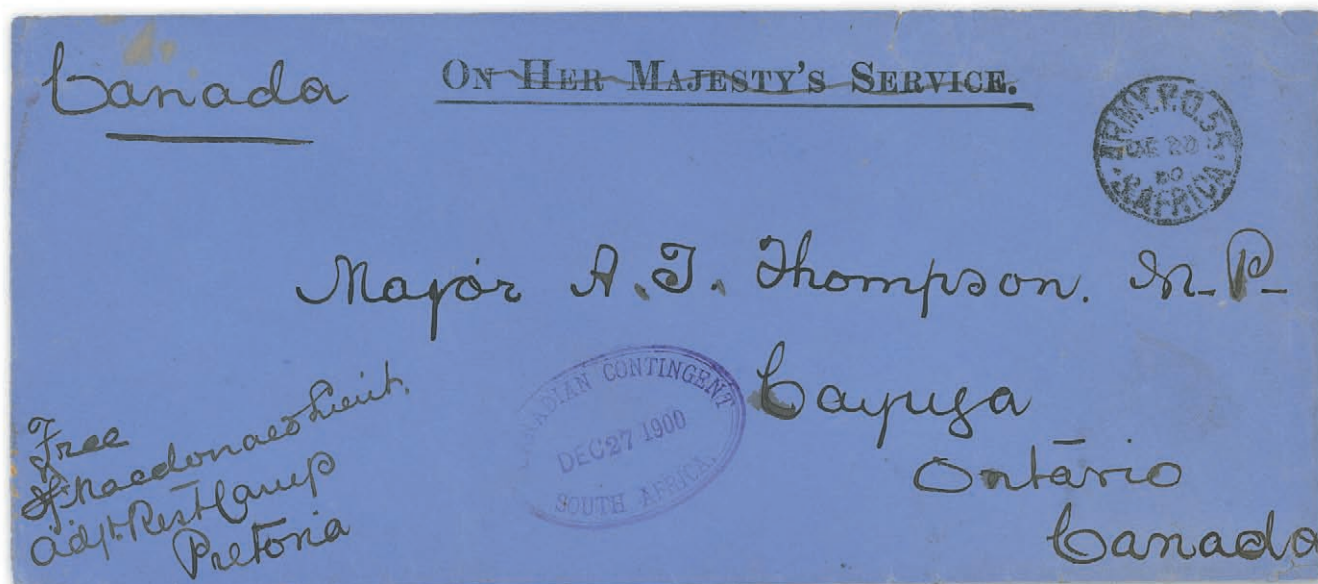 Canada
ON HER MAJESTY'S SERVICE.
ARMY P.O. 54
DE 20
00
S. AFRICA
Major A. T. Thompson. M-P-
Cayuga
Ontario
Canada
CANADIAN CONTINGENT
DEC 27 1900
SOUTH AFRICA.
Free
Macdonald Lieut.
Adjt. Rest Camp
Pretoria